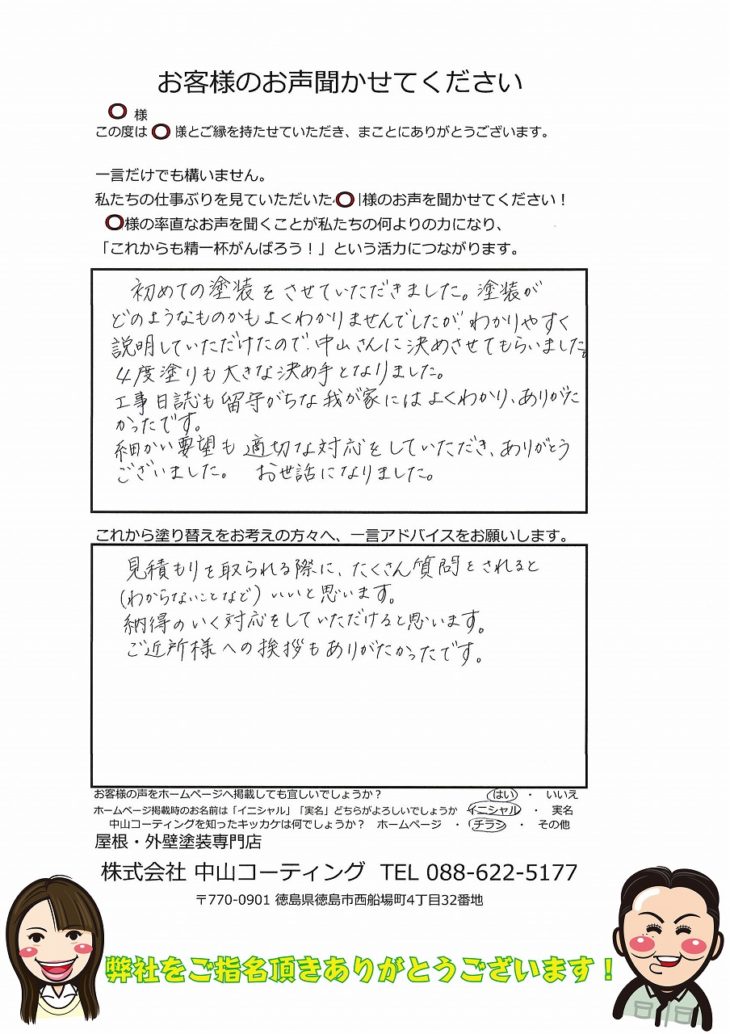 お客様のお声聞かせてください
〇 様
この度は 〇 様とご縁を持たせていただき、まことにありがとうございます。
一言だけでも構いません。
私たちの仕事ぶりを見ていただいた 〇 様のお声を聞かせてください！
〇様の率直なお声を聞くことが私たちの何よりの力になり、
「これからも精一杯がんばろう！」という活力につながります。
初めての塗装をさせていただきました。塗装が
どのようなものかもよくわかりませんでしたが、わかりやすく
説明していただけたので、中山さんに決めさせてもらいました。
4度塗りも大きな決め手となりました。
工事日誌も留守がちな我が家にはよくわかり、ありがた
かったです。
細かい要望も適切な対応をしていただき、ありがとう
ございました。 お世話になりました。
これから塗り替えをお考えの方々へ、一言アドバイスをお願いします。
見積もりを取られる際に、たくさん質問をされると
(わからないことなど) いいと思います。
納得のいく対応をしていただけると思います。
ご近所様への挨拶もありがたかったです。
お客様の声をホームページへ掲載しても宜しいでしょうか？ はい ・ いいえ
ホームページ掲載時のお名前は「イニシャル」「実名」どちらがよろしいでしょうか イニシャル ・ 実名
中山コーティングを知ったキッカケは何でしょうか？ ホームページ ・ チラシ ・ その他
屋根・外壁塗装専門店
株式会社 中山コーティング TEL 088-622-5177
〒770-0901 徳島県徳島市西船場町4丁目32番地
弊社をご指名頂きありがとうございます！